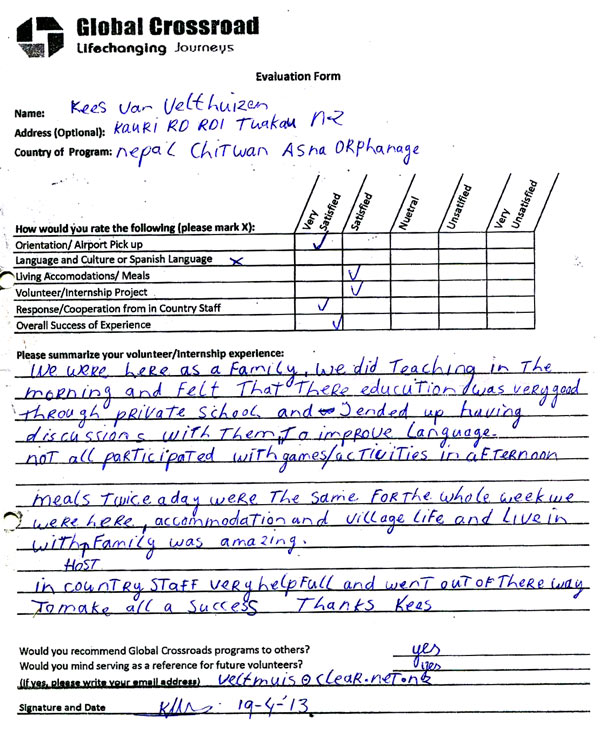 Global Crossroad
Lifechanging Journeys
Evaluation Form
Name: Kees van Velthuizen
Address (Optional): KAURI RD RD1 Tuakau NZ
Country of Program: nepal Chitwan Asha ORphanage
How would you rate the following (please mark X): Very Satisfied Satisfied Nuetral Unsatified Very Unsatisfied
Orientation/ Airport Pick up ✓
Language and Culture or Spanish Language x
Living Accomodations/ Meals ✓
Volunteer/Internship Project ✓
Response/Cooperation from in Country Staff ✓
Overall Success of Experience ✓
Please summarize your volunteer/Internship experience:
We were here as a Family, we did Teaching in The
morning and Felt That There educution was very good
through private school and I ended up having
discussions with Them, To improve Language.
not all participated with games/activities in aFternoon
meals Twice a day were The same For the whole week we
were here, accommodation and village life and Live in
with Family was amazing.
HOST
in country staff very helpfull and went out of There way
To make all a success Thanks Kees
Would you recommend Global Crossroads programs to others? yes
Would you mind serving as a reference for future volunteers? yes
(If yes, please write your email address) veltmuis@clear.net.nz
Signature and Date 19-4-'13